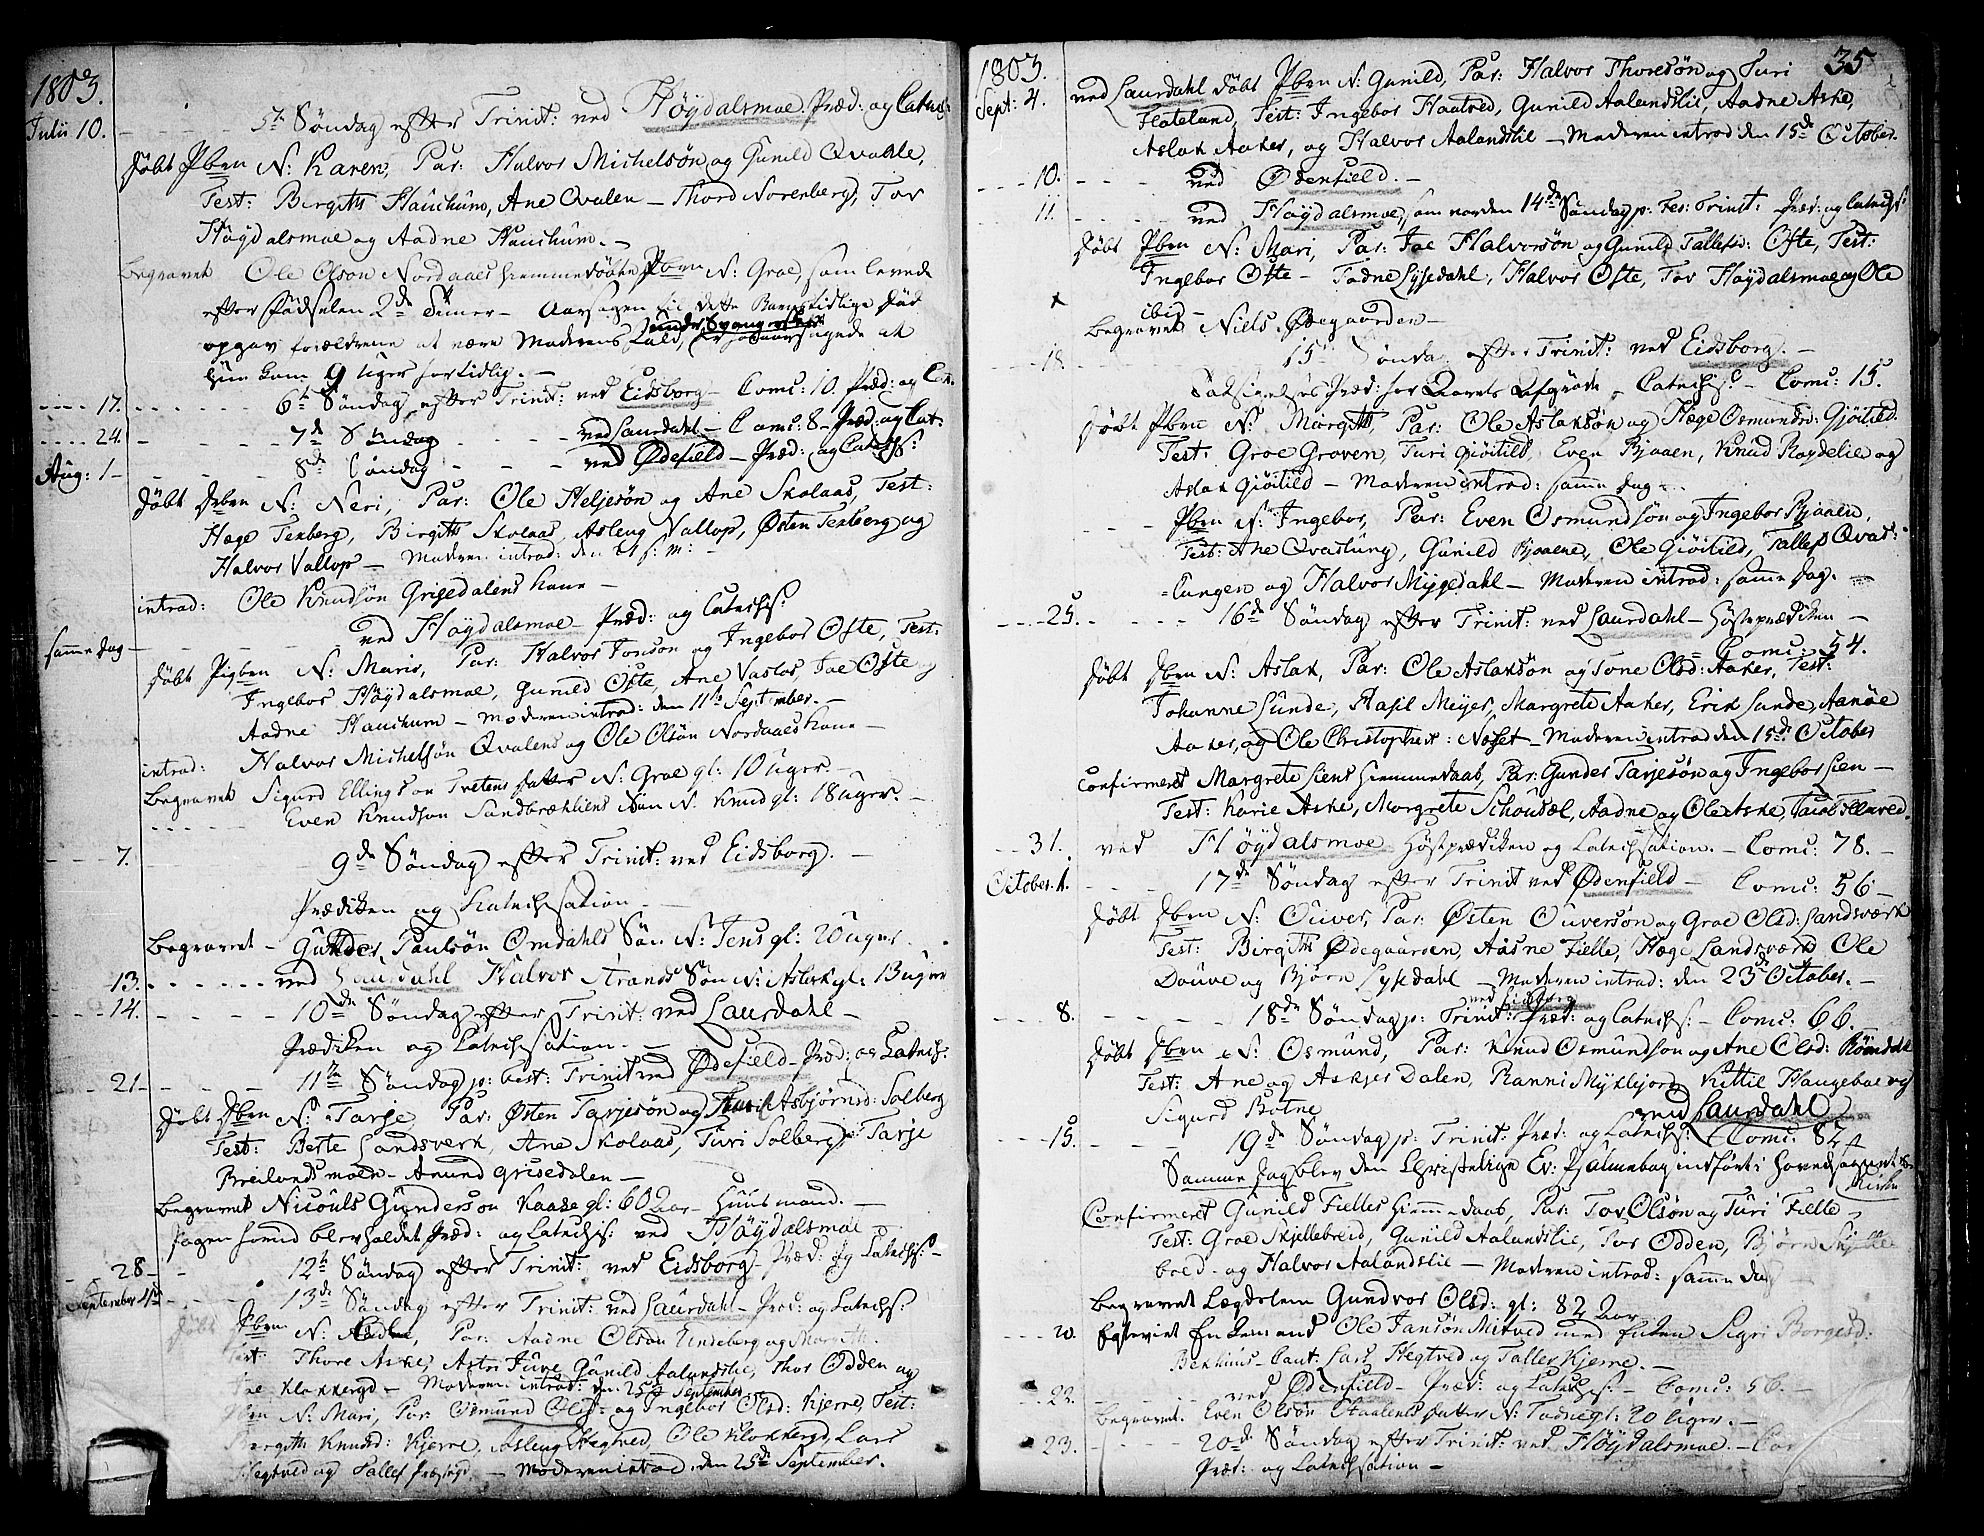 1803.
Julii 10. 5te Søndag efter Trinit: ved Høydalsmoe Præd: og Catech:
døbt Pbrn N: Karen, Par: Halvor Michelsøn og Gunild Qvahle,
Test: Birgith Hauchum, Ane Qvalen – Thord Norenberg, Tov
Høydalsmoe og Aadne Hauchum. –
Begravet Ole Olson Nordaaes hiemmedøbte Pbrn N: Groe, som levede
efter Fødselen 2de Timer – Aarsagen til dette Barns tidlige Død
opgav forældrene at være Moderens Fald, under Svangerskabet
hun kom 9 Uger for tidlig. –
17. 6te Søndag efter Trinit: ved Eidsborg – Comu: 10. Præd: og Cat.
24. 7de Søndag ved Laurdahl – Comu: 8 – Præd: og Cat:
Aug: 1 – 8de Søndag ved Ødefield – Præd: og Catechs:
døbt Drbrn N: Neri, Par: Ole Heljesøn og Ane Skolaas, Test:
Hæge Texberg, Birgith Skolaas, Asleug Vallop, Østen Texberg og
Halvor Vallop – Moderen introd: den 21 s: m: –
introd: Ole Knudsøn Grisedalens Kone –
samme dag – ved Høydalsmoe – Præd: og Catechs:
døbt Pigbrn N: Maris, Par: Halvor Jonson og Ingebor Ofte, Test:
Ingebor Høydalsmoe, Gunild Ofte, Ane Vaslos, Joe Ofte og
Aadne Hauchum – Moderen introd: den 11te September. –
introd: Halvor Michelsøn Qvalens og Ole Olsøn Nordaaes Kone –
Begravet Sigurd Ellingson Tvetens datter N: Groe gl: 10 Uger. –
Even Knudson Sandbrækliens Søn N: Knud gl: 18 Uger. –
7. 9de Søndag efter Trinit: ved Eidsborg. –
Prædiken og Katechisation –
Begravet – Gunder Paulsøn Omdahls Søn N: Jens gl: 20 uger
13. ved Laurdahl Halvor Strands Søn N: Aslak gl: 13 uger
14. 10de Søndag efter Trinit: ved Laurdahl –
Prædiken og Catechisation –
21 – 11te Søndag p: fest: Trinit ved Ødefield – Præd: og Catech:
døbt Drbrn N: Tarje, Par: Østen Tarjesøn og Asbjørnsd: Solberg
Test: Berte Landsverk, Ane Skolaas, Turi Solberg Tarje
Breilandsmoen – Amund Grisedalen –
Begravet Nicouls Gunderson Kaase gl: 60 Aar – Huusmand. –
Dagen forud blev holdet Præd: og Catechis: ved Høydalsmoe –
28 – 12te Søndag efter Trinit: ved Eidsborg – Præd: og Catechs: –
September 4de 13de Søndag efter Trinit: ved Laurdahl – Præd: og Catechs:
døbt Pbrn N: Par: Aadne Olson Lindeberg og Margith
Test: Thore Aske, Astri Juve, Gunild Aalandslie, Thor Odden og
Klokkergd – Moderen introd: den 25de September
N: Mari, Par: Osmund Ols: og Ingebor Olsd: Kjerre, Test:
Birgith Knudsd: Kjerre, Asleug Hegtved, Ole Klokkergd, Lars
Hegtved og Tallef – Moderen introd. den 25de September.
35
1803.
Sept: 4. ved Laurdahl døbt Pbrn N: Gunild, Par: Halvor Thoresøn og Turi
Flateland, Test: Ingebor Haatved, Gunild Aalandslie, Aadne Aske,
Aslak Aaker, og Halvor Aalandslie – Moderen introd den 15de October.
10. ved Ødenfield. –
11. ved Høydalsmoe, som var den 14de Søndag p: Fes: Trinit: Præd: og Catechs:
døbt Pbrn N: Mari, Par: Joe Halvorsøn og Gunild Tallefsd: Ofte, Test:
Ingebor Ofte – Tadne Lysedahl, Halvor Ofte, Tov Høydalsmoe og Ole
ibid –
Begravet Niels Ødegaarden –
18. 15de Søndag efter Trinit: ved Eidsborg. –
Taksigelses Præd: for Qvægets Afgrøde – Catechis: – Comu: 15.
døbt Pbrn N: Margith, Par: Ole Aslaksøn og Hæge Osmundsd: Gjøitild.
Test: Groe Groven, Turi Giøitild, Even Bjaaen, Knud Røydelien og
Aslak Giøitild – Moderen introd: samme dag –
Pbrn N: Ingebor, Par: Even Osmundsøn og Ingebor Bjaaen,
Test: Ane Qvastung, Gunild Bjaaene, Ole Giøitild, Tallef Qvas:
=tungen og Halvor Mygedahl – Moderen introd: samme dag. –
25. 16de Søndag efter Trinit: ved Laurdahl – Høstprædiken –
Comu: 54.
døbt Drbrn N: Aslak, Par: Ole Aslaksøn og Tone Olsd: Aaker, Test:
Johanne Lunde, Haxil Meyer, Margrete Aaker, Erik Lunde, Aanøe
Aaker, og Ole Christophers: Næset – Moderen introd den 15de October
Confirmeret Margrete Liens hiemmedaab, Par: Gunder Tarjesøn og Ingebor Lien –
Test: Karie Aske, Margrete Schousæl, Aadne og Ole Aske, Jacob Fleaved.
31. ved Høydalsmoe Høstprædiken og Catechisation. – Comu: 78. –
October. 1. 17de Søndag efter Trinit ved Ødenfield – Comu: 56 –
døbt Drbrn N: Ouver, Par: Østen Ouversøn og Groe Olsd: Landsværk
Test: Birgith Ødegaarden, Aasne Fielle, Hæge Landsværk Ole
Douve og Bjørn Lysedahl – Moderen introd: den 23de October. –
8. 18de Søndag p: Trinit: ved Eidsborg Præd: og Catechs: – Comu: 66.
døbt Drbrn N: Osmund, Par: Knud Osmundsøn og Ane Olsd: Rømdahl
Test: Ane og Askjer Dalen, Ranni Mykljord, Kittil Haugeboe og
Sigurd Botne
ved Laurdahl
15. 19de Søndag p: Trinit: Præd: og Catechs: Comu: 82
Samme dag blev den Christelige Ev: Psalmebog indført i Hovedsognets
Kirke
Confirmeret Gunild Fielles hiemmedaab, Par: Tov Olsøn og Turi Fielle
Test: Groe Skjellebreid, Gunild Aalandslie, Tov Odden, Bjørn Skjelle
breid – og Halvor Aalandslie – Moderen introd: samme dag
Begravet Lægdslem Gundvor Olsd: gl: 82 Aar
20. Egteviet Enkemand Ole Jansøn Mitved med Enken Sigri Borgesd:
Bekhuus – Caut. Lars Hegtved og Tallef Kjerre. –
22. ved Ødenfield – Præd: og Catechs: – Comu: 56. –
Begravet. Even Olsøn Staalens datter N: Tadne gl: 20 Uger. –
23. 20de Søndag efter Trinit: ved Høydalsmoe. – Co
Præd: og Catechisation –